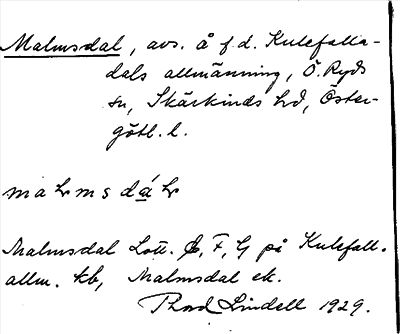 Malmsdal, avs. å f.d. Kulefalla-
dals allmänning, Ö. Ryds
sn, Skärkinds hd, Öster-
götl. l.
mahmsdáh
Malmsdal Lott. F, G på Kulefall.
allm. kb, Malmsdal ek.
Thord Lindell 1929.